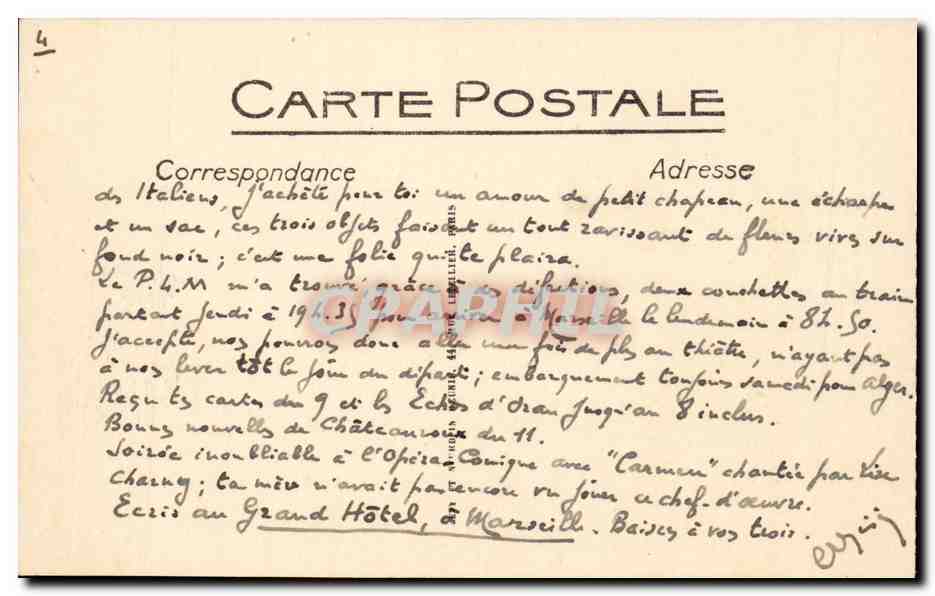 4
CARTE POSTALE
Correspondance
Adresse
des Italiens, j'achète pour toi un amour de petit chapeau, une écharpe
et un sac, ces trois objets faisant un tout ravissant de fleurs vives sur
fond noir ; c'est une folie qui te plaira.
Le P.L.M m'a trouvé, grâce à des défections, deux couchettes au train
partant Jeudi à 19h.35 pour arriver à Marseille le lendemain à 8h.50.
J'accepte, nous pourrons donc aller une fois de plus au théâtre, n'ayant pas
à nous lever tôt le jour du départ ; embarquement toujours samedi pour Alger.
Reçu tes cartes du 9 et les Echos d'Oran jusqu'au 8 inclus.
Bonnes nouvelles de Châteauroux du 11.
Soirée inoubliable à l'Opéra-Comique avec "Carmen" chantée par Lise
Charny ; ta mère n'avait pas encore vu jouer ce chef-d'œuvre.
Ecris au Grand Hôtel, à Marseille. Baisers à vos trois.
CPAPHIL
PARIS